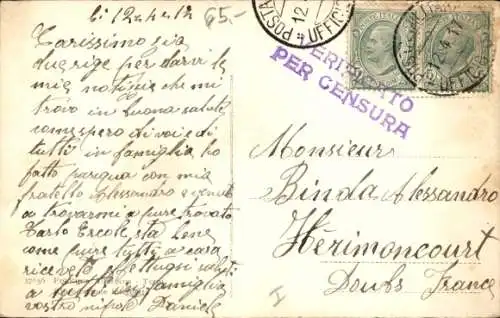 li 12=4=12
65.-
Carissimo zio
due rige per darvi le
mie notizie che mi
trovo in buona salute
come spero di voi e di
tutti in famiglia ho
fatto pasqua con mio
fratello Alessandro e venuto
a trovarmi a pure trovato
Carlo Ercole sta bene
come pure tutti a casa
ricevete saluti
a tutti famiglia
vostro nipote Daniele
POSTA
12
UFFICIO
VERIFICATO
PER CENSURA
12.4.1
UFFICIO
Monsieur
Binda Alessandro
Hèrimoncourt
Doubs France
I